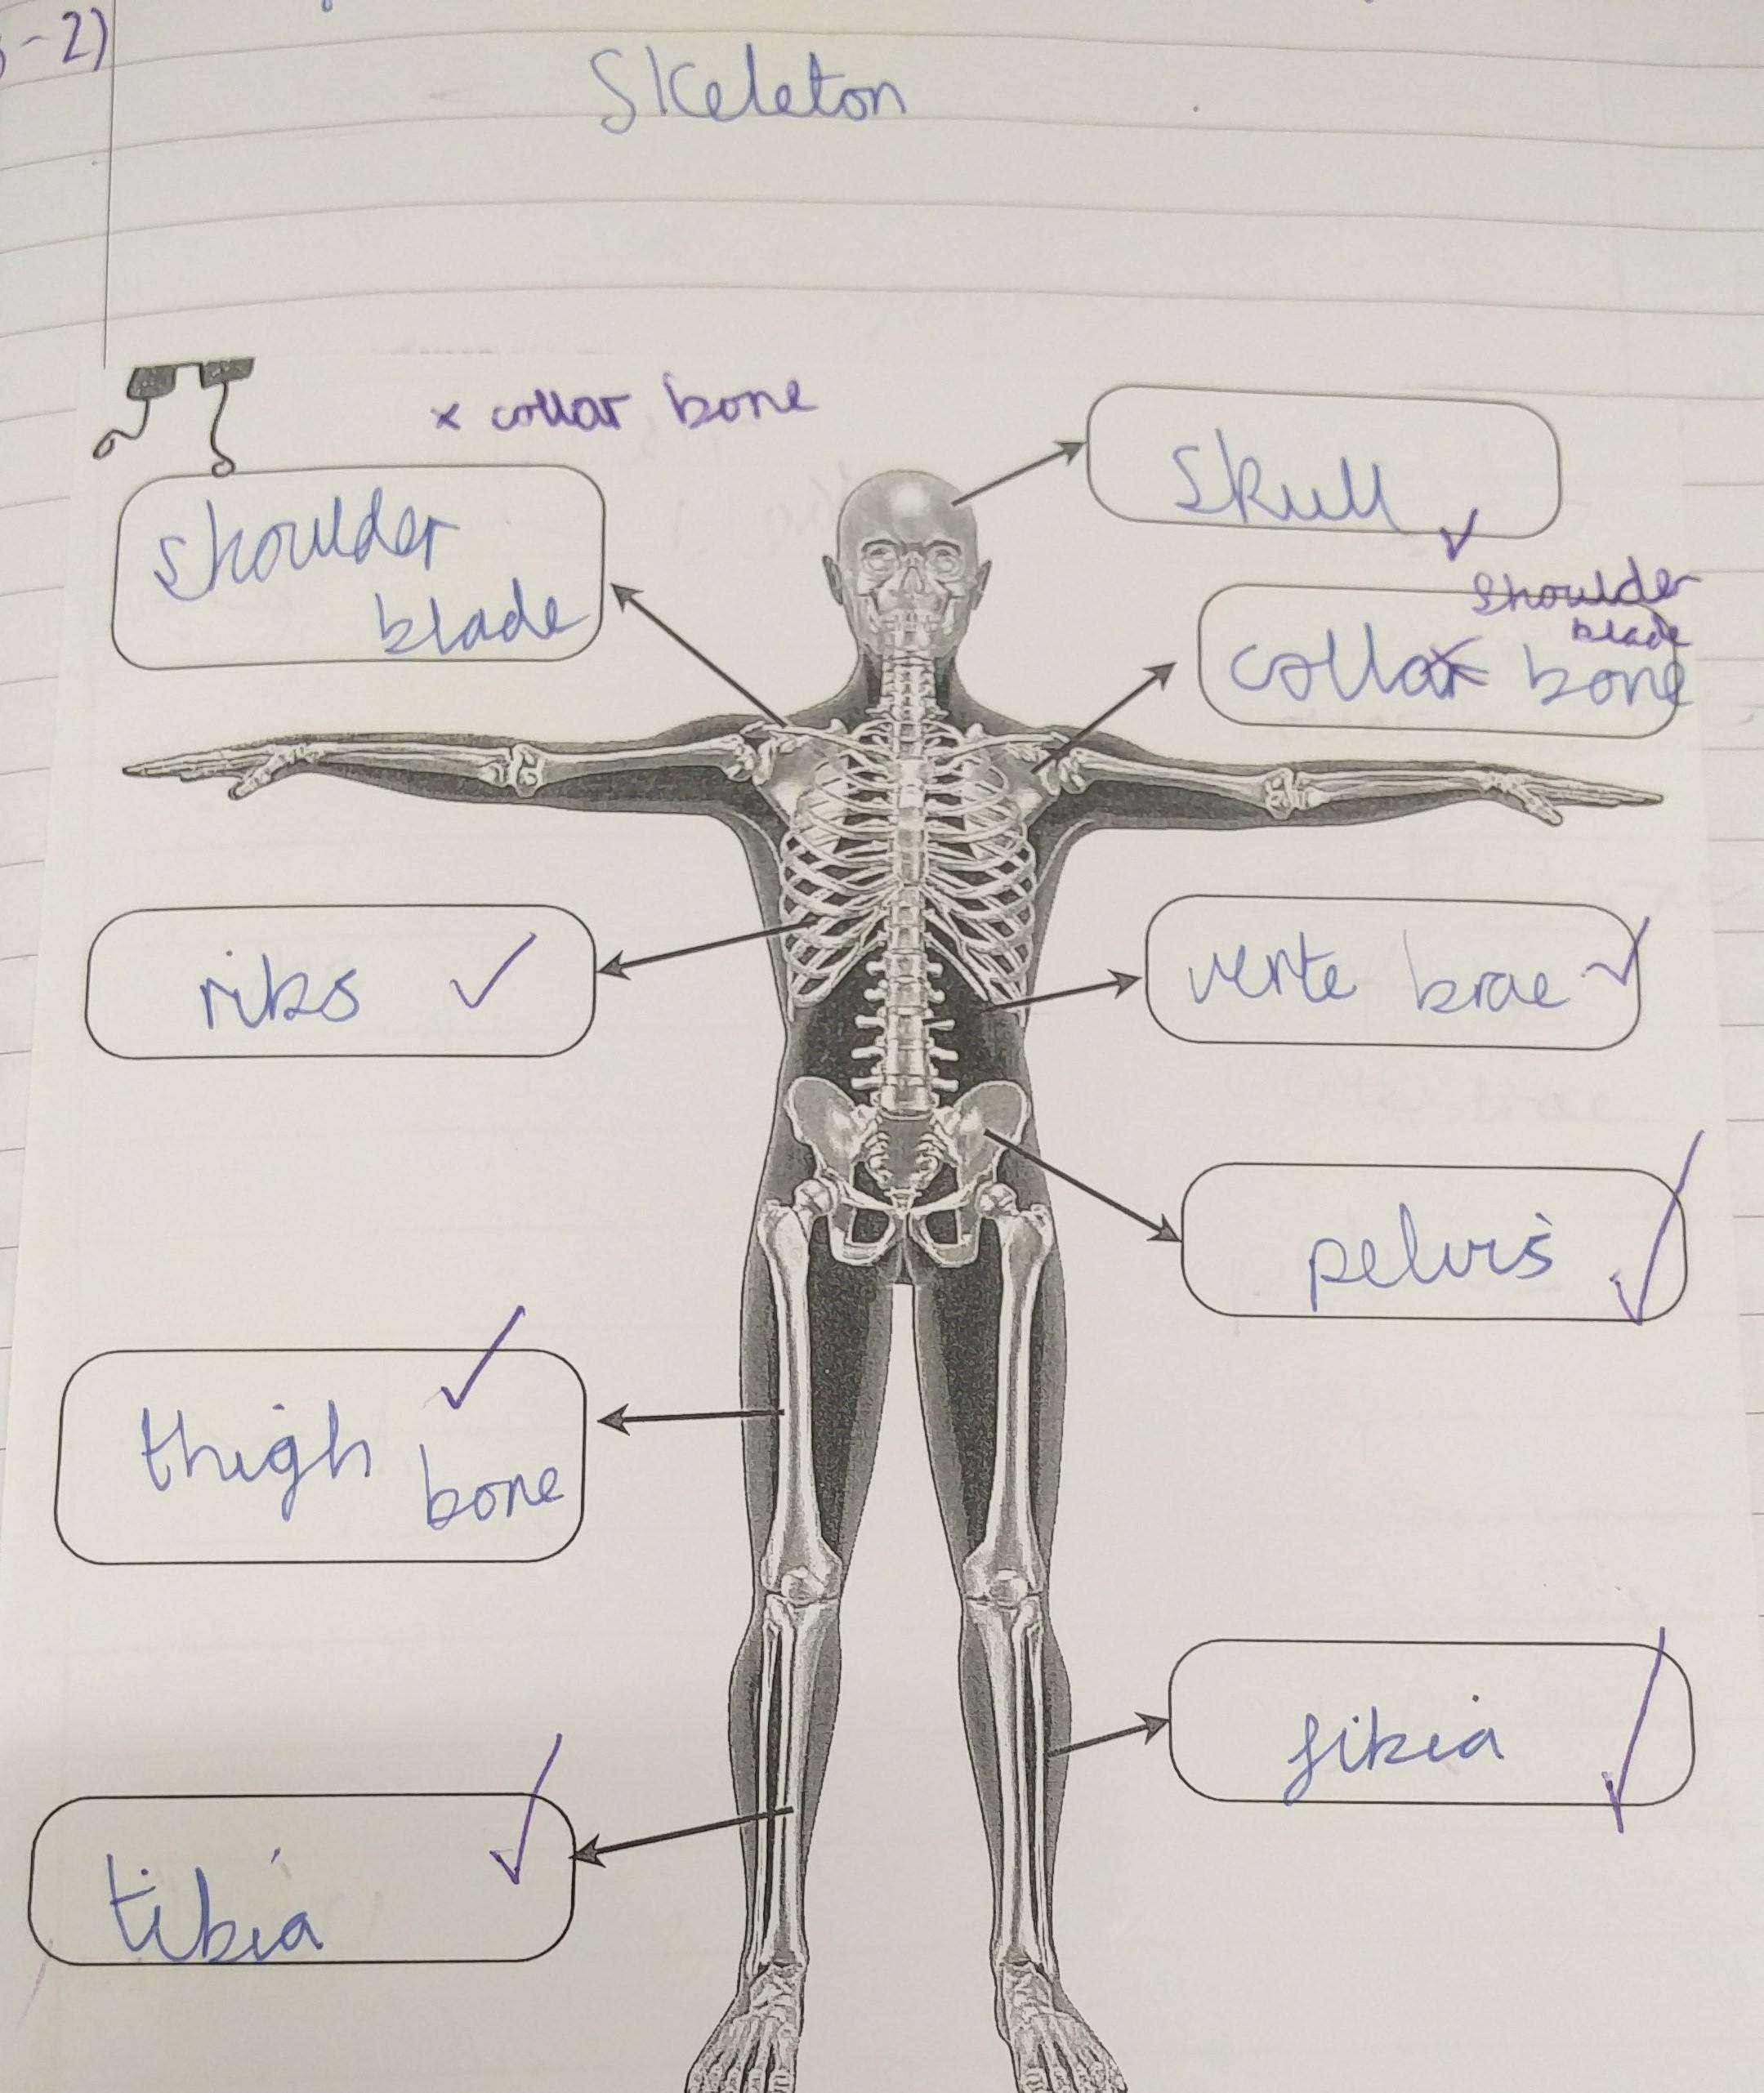 -2)
Skeleton
x collar bone
skull
shoulder
blade
shoulder
blade
collar bone
ribs
verte brae
pelvis
thigh
bone
fibia
tibia